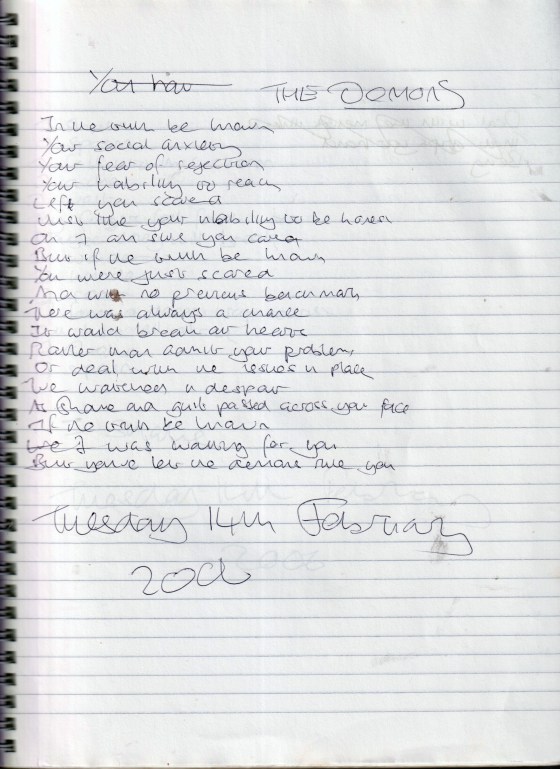 You hav THE DEMONS
If the truth be known
Your social anxiety
Your fear of rejection
Your inability to reach
Left you scared
Just like your inability to be honest
Oh I am sure you cared
But if the truth be known
You were just scared
And with no previous benchmark
There was always a chance
It would break our hearts
Rather than admit your problems
Or deal with the issues in place
We watched in despair
As shame and guilt passed across your face
If the truth be known
I was waiting for you
But you've let the demons rule you
Tuesday 14th February
2006